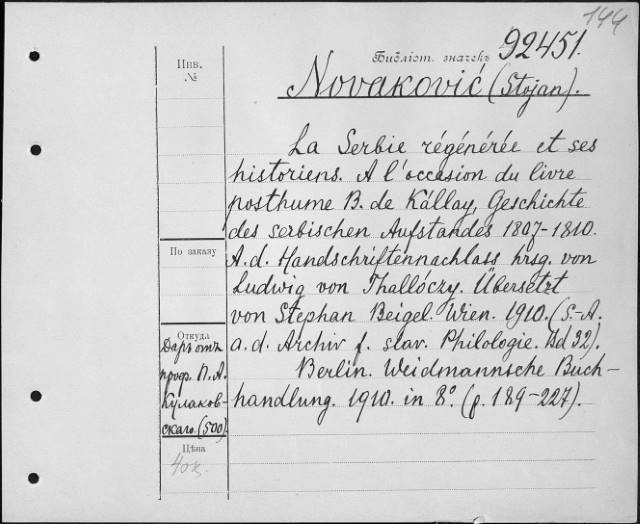 144
Библіот. значекъ 92451.
Инв.
№
Novaković (Stojan).
La Serbie régénérée et ses
historiens. A l'occasion du livre
posthume B. de Kállay, Geschichte
des serbischen Aufstandes 1807-1810.
A.d. Handschriftennachlass hrsg. von
Ludwig von Thallóczy. Übersetzt
von Stephan Beigel. Wien. 1910. (S.-A.
a. d. Archiv f. slav. Philologie. Bd 32).
Berlin. Weidmannsche Buch-
handlung. 1910. in 8°. (p. 189-227).
По заказу
Откуда
Даръ отъ
проф. П. А.
Кулаков-
скаго. (500).
Цѣна
40к.